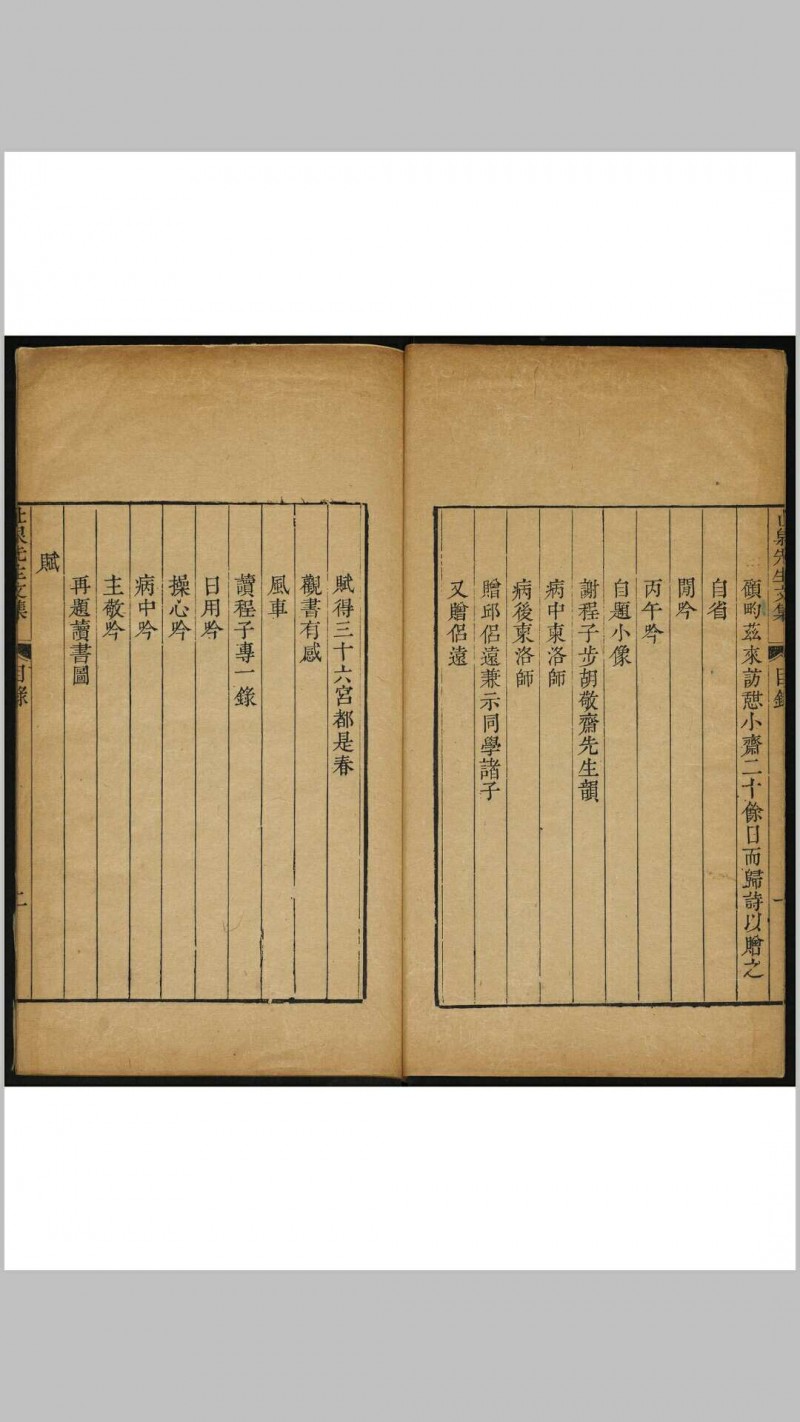 先生文集
目錄
一
顧畇茲來訪憇小齋二十餘日而歸詩以贈之
自省
閒吟
丙午吟
自題小像
謝程子步胡敬齋先生韻
病中柬洛師
病後柬洛師
贈邱侶遠兼示同學諸子
又贈侶遠
賦得三十六宮都是春
觀書有感
風車
讀程子專一錄
日用吟
操心吟
病中吟
主敬吟
再題讀書圖
賦
泉先生文集
目錄
二